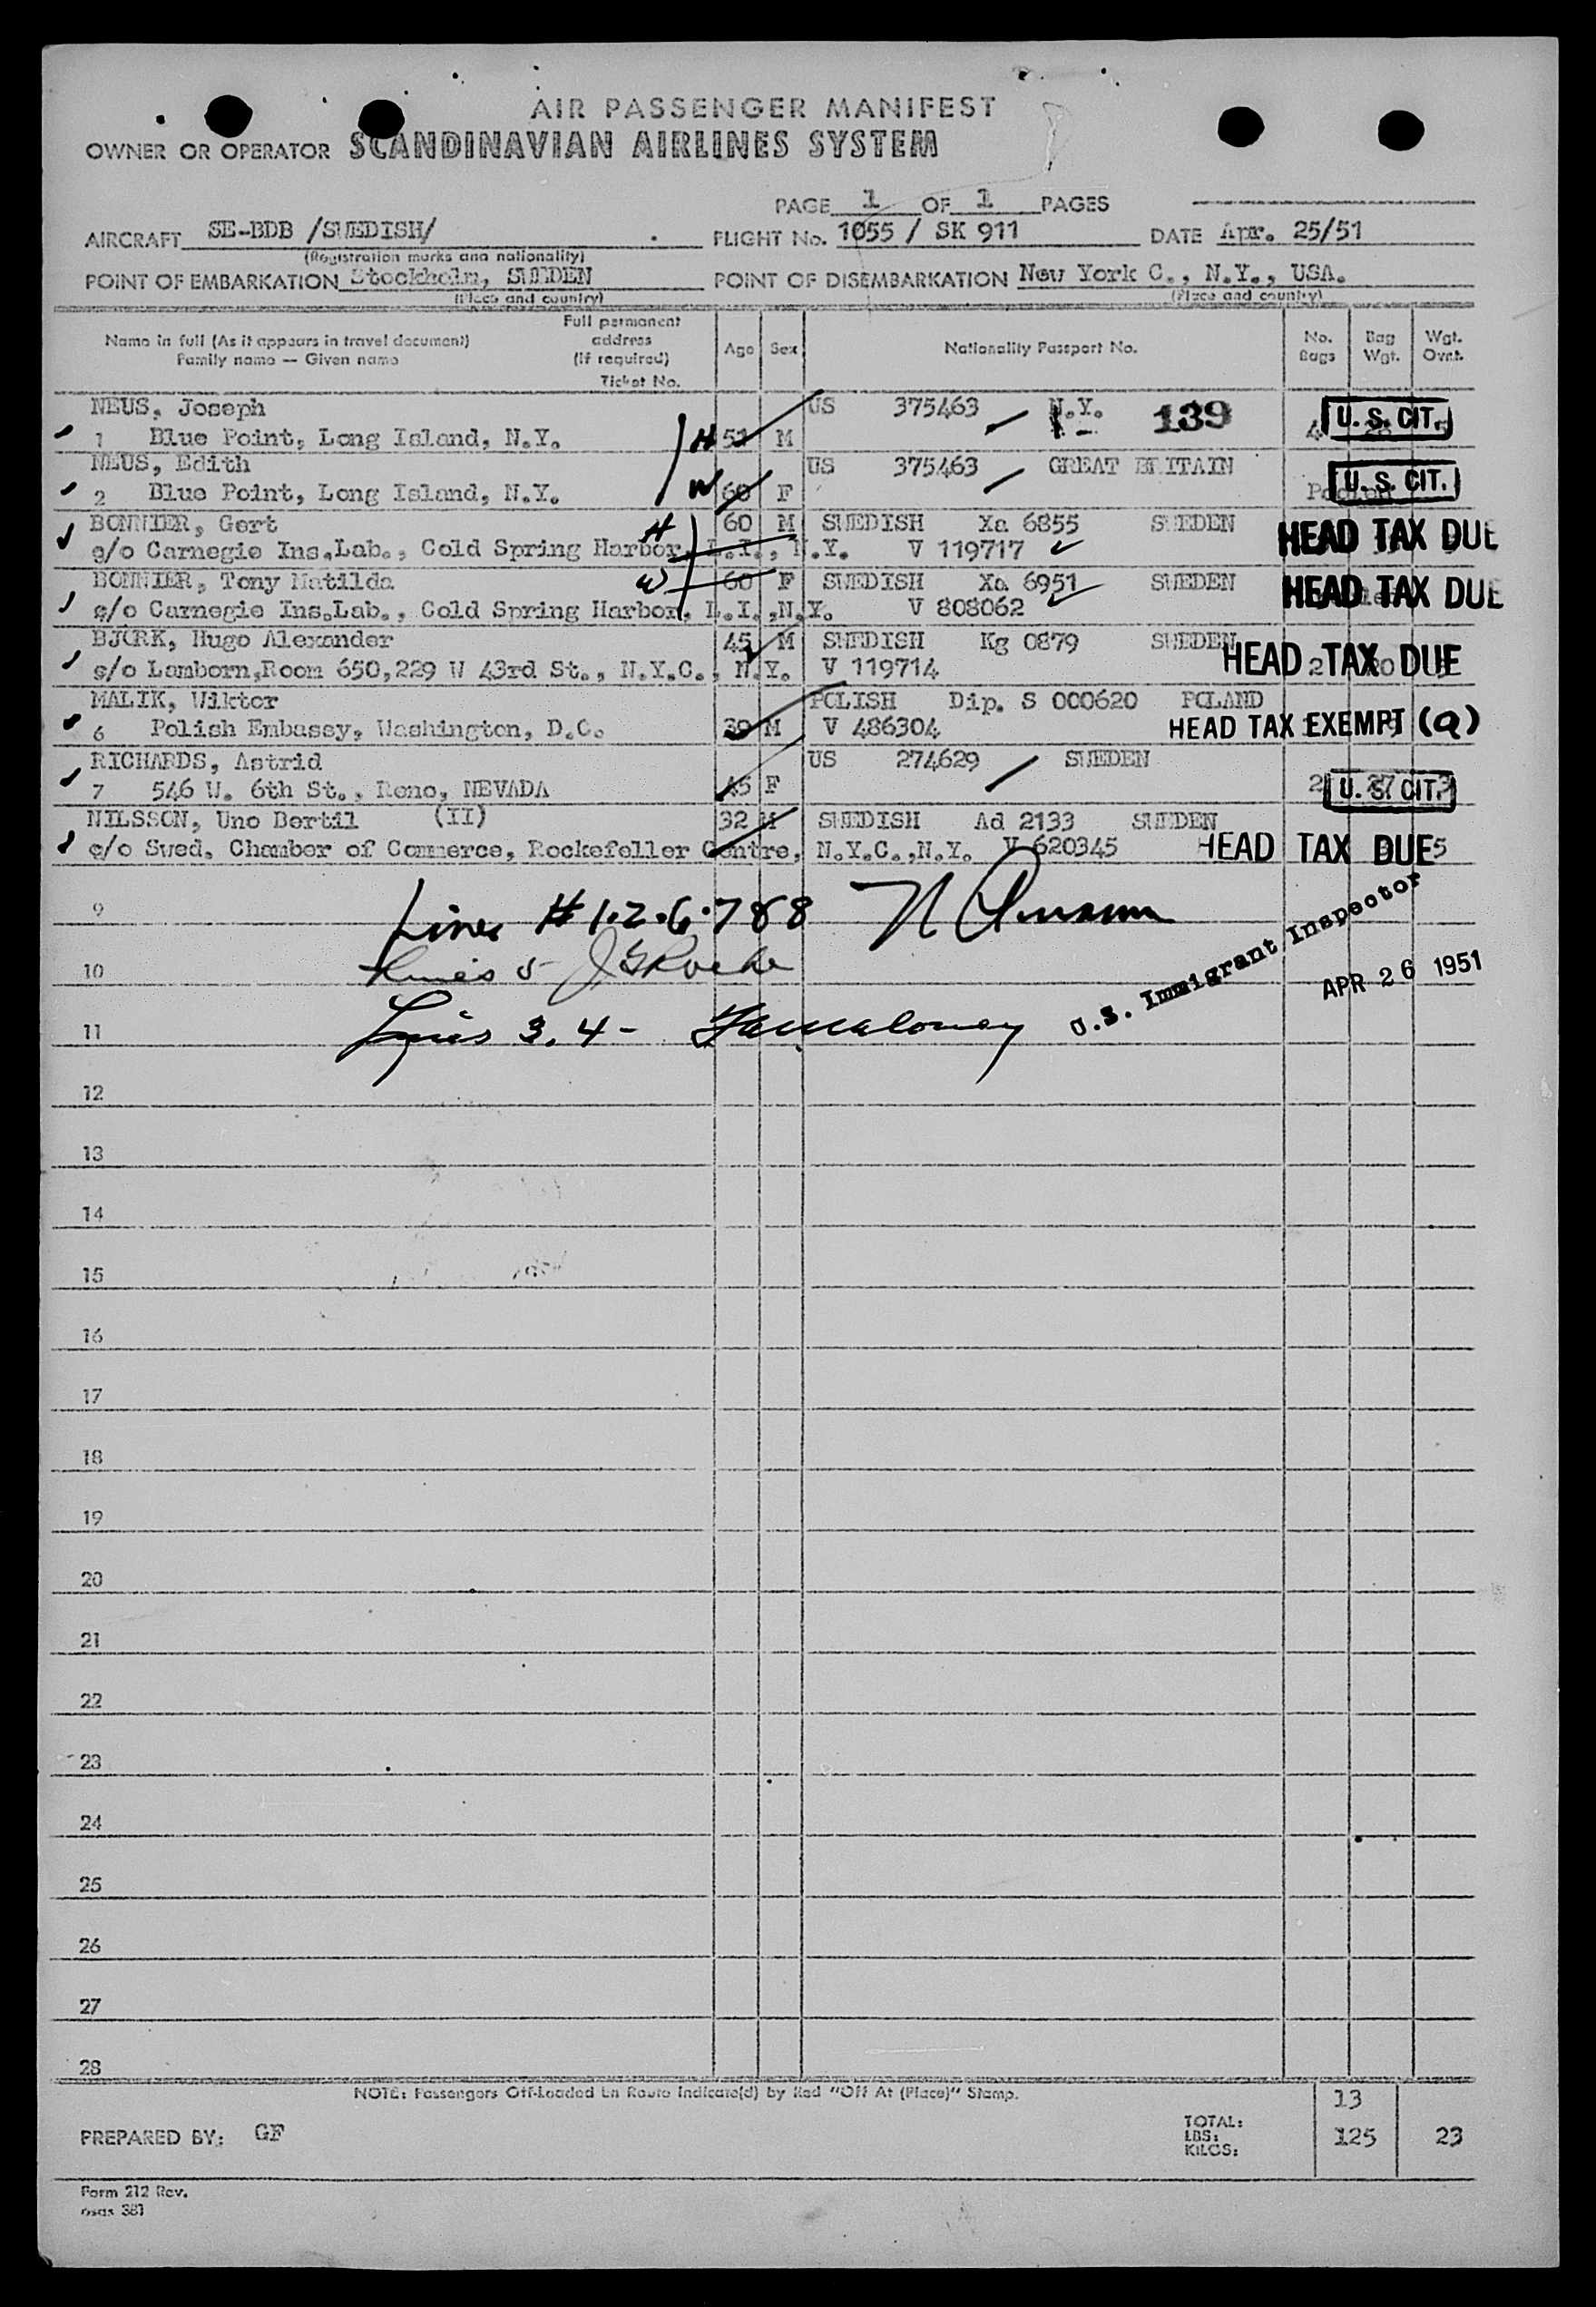 AIR PASSENGER MANIFEST
OWNER OR OPERATOR SCANDINAVIAN AIRLINES SYSTEM
PAGE 1 OF 1 PAGES
AIRCRAFT SE-BDB /SWEDISH/ FLIGHT No. 1055 / SK 911 DATE Apr. 25/51
(Registration marks and nationality)
POINT OF EMBARKATION Stockholm, SWEDEN POINT OF DISEMBARKATION New York C., N.Y., USA.
(Place and country) (Place and country)
Name in full (As it appears in travel document) Family name — Given name Full permanent address (if required) Ticket No. Age Sex Nationality Passport No. No. Bags Bag Wgt. Wgt. Ovrt.
NEUS, Joseph US 375463 N.Y. 139 U. S. CIT.
1 Blue Point, Long Island, N.Y. H M 4
NEUS, Edith US 375463 GREAT BRITAIN U. S. CIT.
2 Blue Point, Long Island, N.Y. W 60 F
BONNIER, Gert H 60 M SWEDISH Xa 6855 SWEDEN HEAD TAX DUE
c/o Carnegie Ins.Lab., Cold Spring Harbor, L.I., N.Y. V 119717
BONNIER, Tony Matilda W 60 F SWEDISH Xa 6951 SWEDEN HEAD TAX DUE
c/o Carnegie Ins.Lab., Cold Spring Harbor, L.I.,N.Y. V 808062
BJORK, Hugo Alexander 45 M SWEDISH Kg 0879 SWEDEN
c/o Lamborn,Room 650,229 W 43rd St., N.Y.C., N.Y. V 119714 HEAD TAX DUE
MALIK, Wiktor POLISH Dip. S 000620 POLAND
6 Polish Embassy, Washington, D.C. M V 486304 HEAD TAX EXEMPT (a)
RICHARDS, Astrid US 274629 SWEDEN
7 546 W. 6th St., Reno, NEVADA 45 F 2 U. S. CIT.
NILSSON, Uno Bertil (II) 32 M SWEDISH Ad 2133 SWEDEN
c/o Swed. Chamber of Commerce, Rockefeller Centre, N.Y.C.,N.Y. V 620345 HEAD TAX DUE 5
9 Lines # 1.2.6.7 & 8
10 Lines 5 J G Roche
11 Lines 3. 4 - Maloney
U.S. Immigrant Inspector
APR 26 1951
12
13
14
15
16
17
18
19
20
21
22
23
24
25
26
27
28
NOTE: Passengers Off-Loaded En Route Indicate(d) by Red "Off At (Place)" Stamp.
13
PREPARED BY: GF TOTAL: LBS: KILOS: 125 23
Form 212 Rev.
osas 381